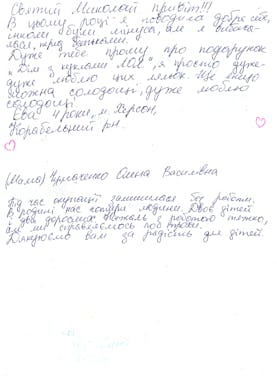 Святий Миколай привіт!!!
В цьому році я поводила добре себе,
інколи були мінуси, але я вибача-
лась перед батьками.
Дуже тебе прошу про подарунок
"Дім з куклами ЛОЛ", я просто дуже-
дуже люблю цих ляльок. Ще якщо
можна солодощі, дуже люблю
солодощі.
Єва 4 роки, м. Херсон,
Корабельний р-н.
(Мама) Олена Василівна
Під час окупації залишилася без роботи.
В родині нас чотири людини. Двоє дітей
і два дорослих. На жаль з роботою тяжко,
але ми справляємось потрохи.
Дякуємо вам за радість для дітей.